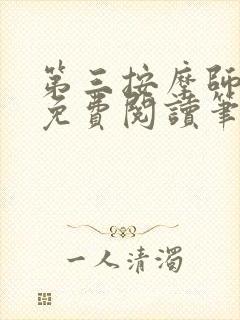 第三按摩師
免費閱讀筆
一人清濁